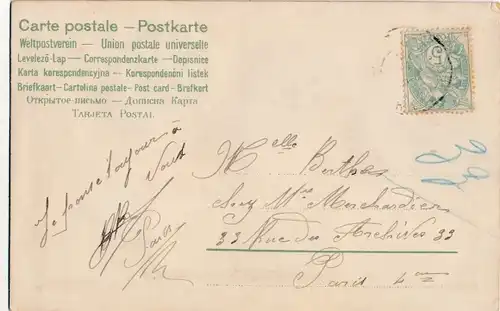 Carte postale — Postkarte
Weltpostverein — Union postale universelle
Levelező-Lap — Correspondenzkarte — Dopisnice
Karta korespondencyjna — Korespondenční lístek
Briefkaart — Cartolina postale — Post card — Brefkort
Открытое письмо — Дописна Карта
Tarjeta Postal
Je pense toujours à
Vous
Paris
5
Melle Berthe
Chez Mme Marchandier
33 Rue des Archives 33
Paris 4